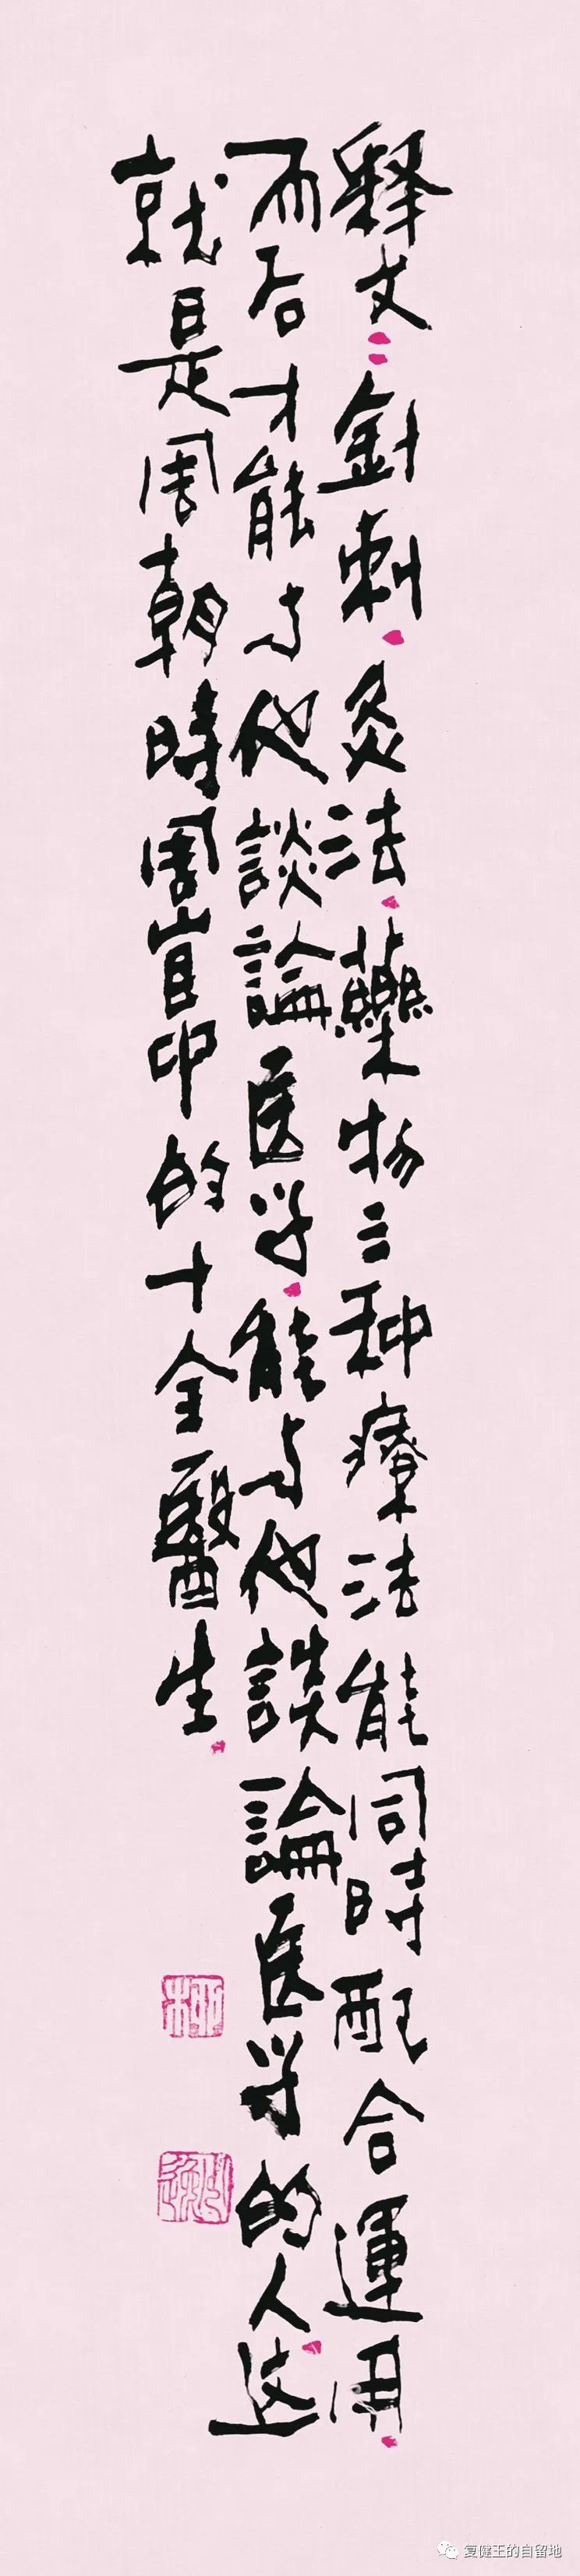 释文：針刺、灸法、藥物三种療法能同時配合運用、
而后才能与他談論医学、能与他談論医学的人、这
就是周朝時周官的十全醫生。
复健王的自留地